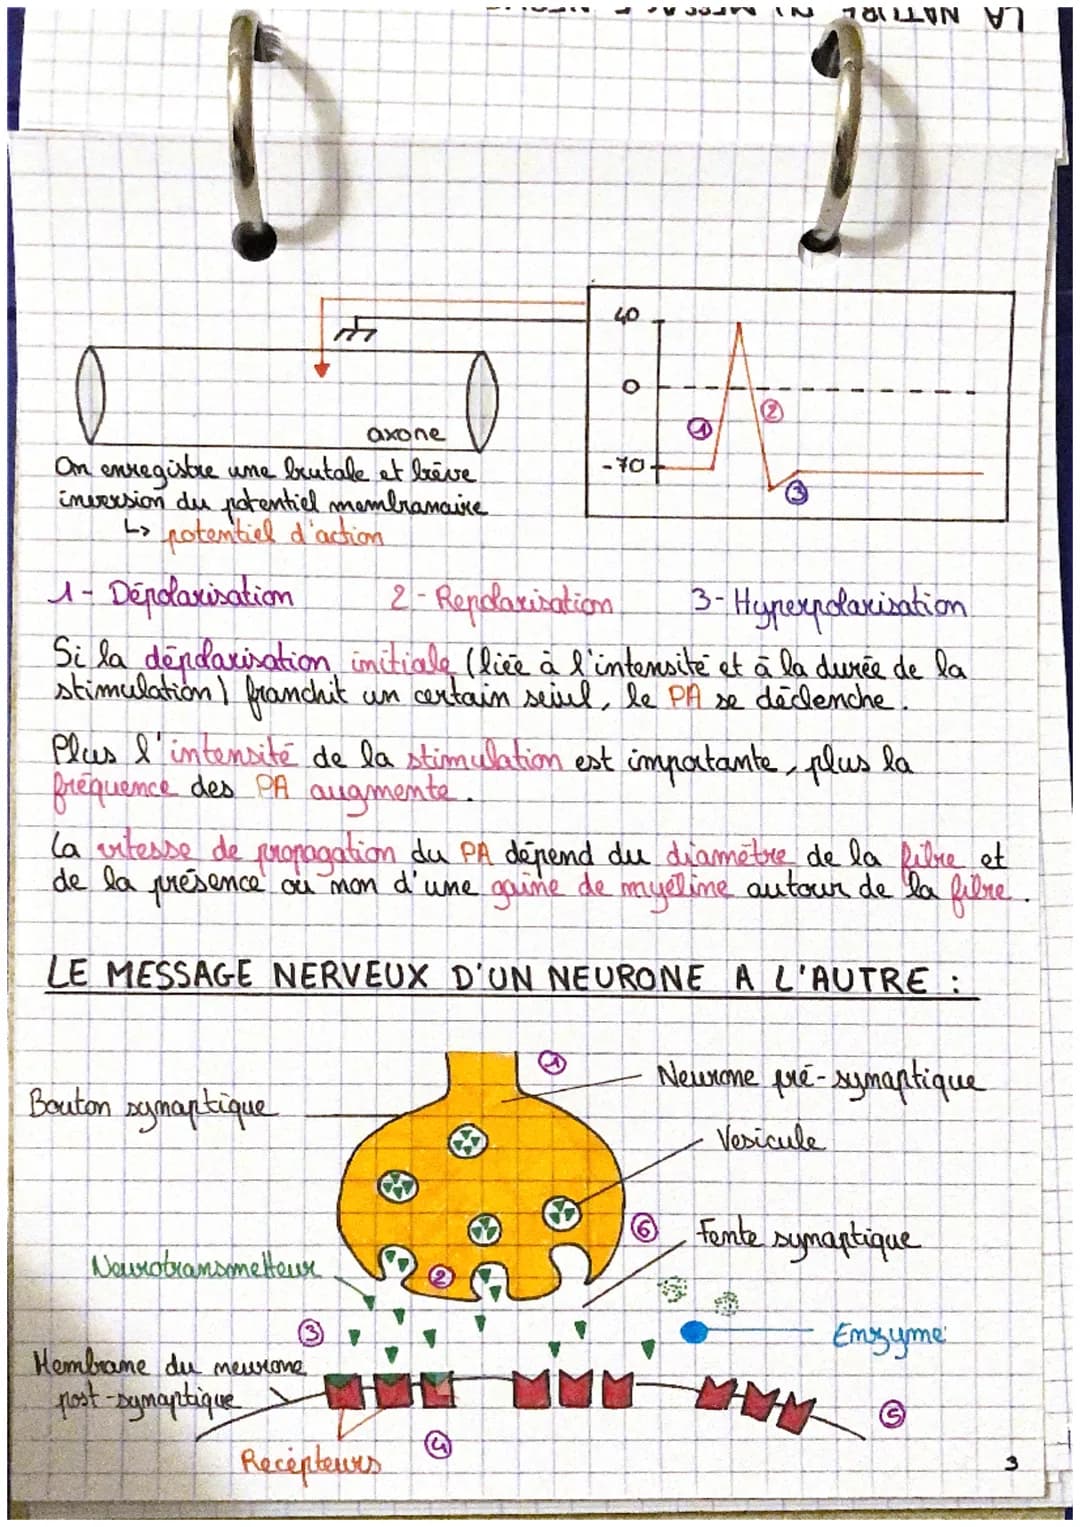 LA NATURE DU MESSAGE
40
0
-70
1
2
3
axone
On enregistre une brutale et brève
inversion du potentiel membranaire
↳ potentiel d'action
1- Dépolarisation 2- Repolarisation 3- Hyperpolarisation
Si la dépolarisation initiale (liée à l'intensité et à la durée de la
stimulation) franchit un certain seiul, le PA se déclenche.
Plus l'intensité de la stimulation est importante, plus la
fréquence des PA augmente.
La vitesse de propagation du PA dépend du diamètre de la fibre et
de la présence ou non d'une gaine de myéline autour de la fibre.
LE MESSAGE NERVEUX D'UN NEURONE A L'AUTRE :
1
Neurone pré-synaptique
Bouton synaptique
Vesicule
6
Fente synaptique
Neurotransmetteur
2
3
Enzyme
Membrane du neurone
post-synaptique
5
4
Récepteurs
3